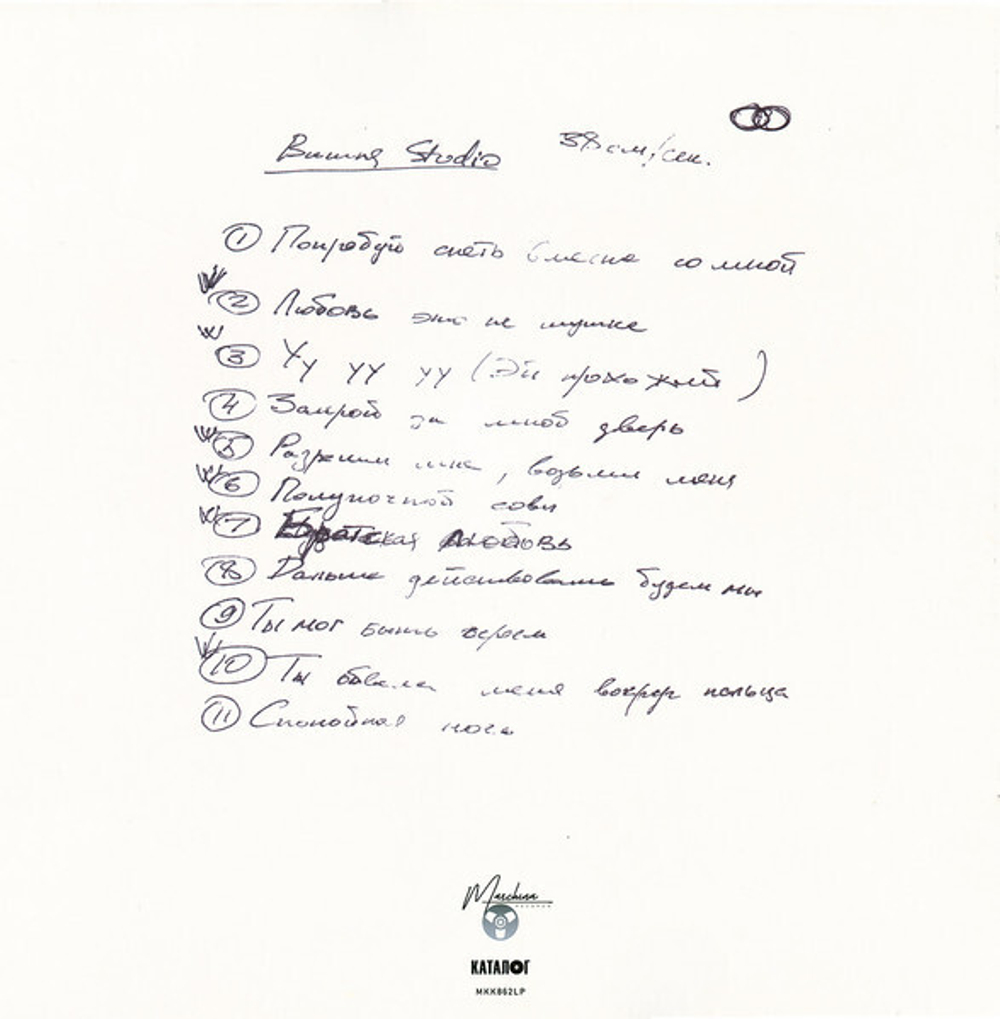 Вишня Studio 38 см/сек.
① Попробуй спеть вместе со мной
② Любовь это не шутка
③ Уу уу уу (Эй прохожий)
④ Закрой за мной дверь
⑤ Разреши мне, возьми меня
⑥ Полуночной совы
⑦ Братская любовь
⑧ Дальше действовать будем мы
⑨ Ты мог быть героем
⑩ Ты обвела меня вокруг пальца
⑪ Спокойная ночь
Maschina
RECORDS
КАТАЛОГ
MKK862LP